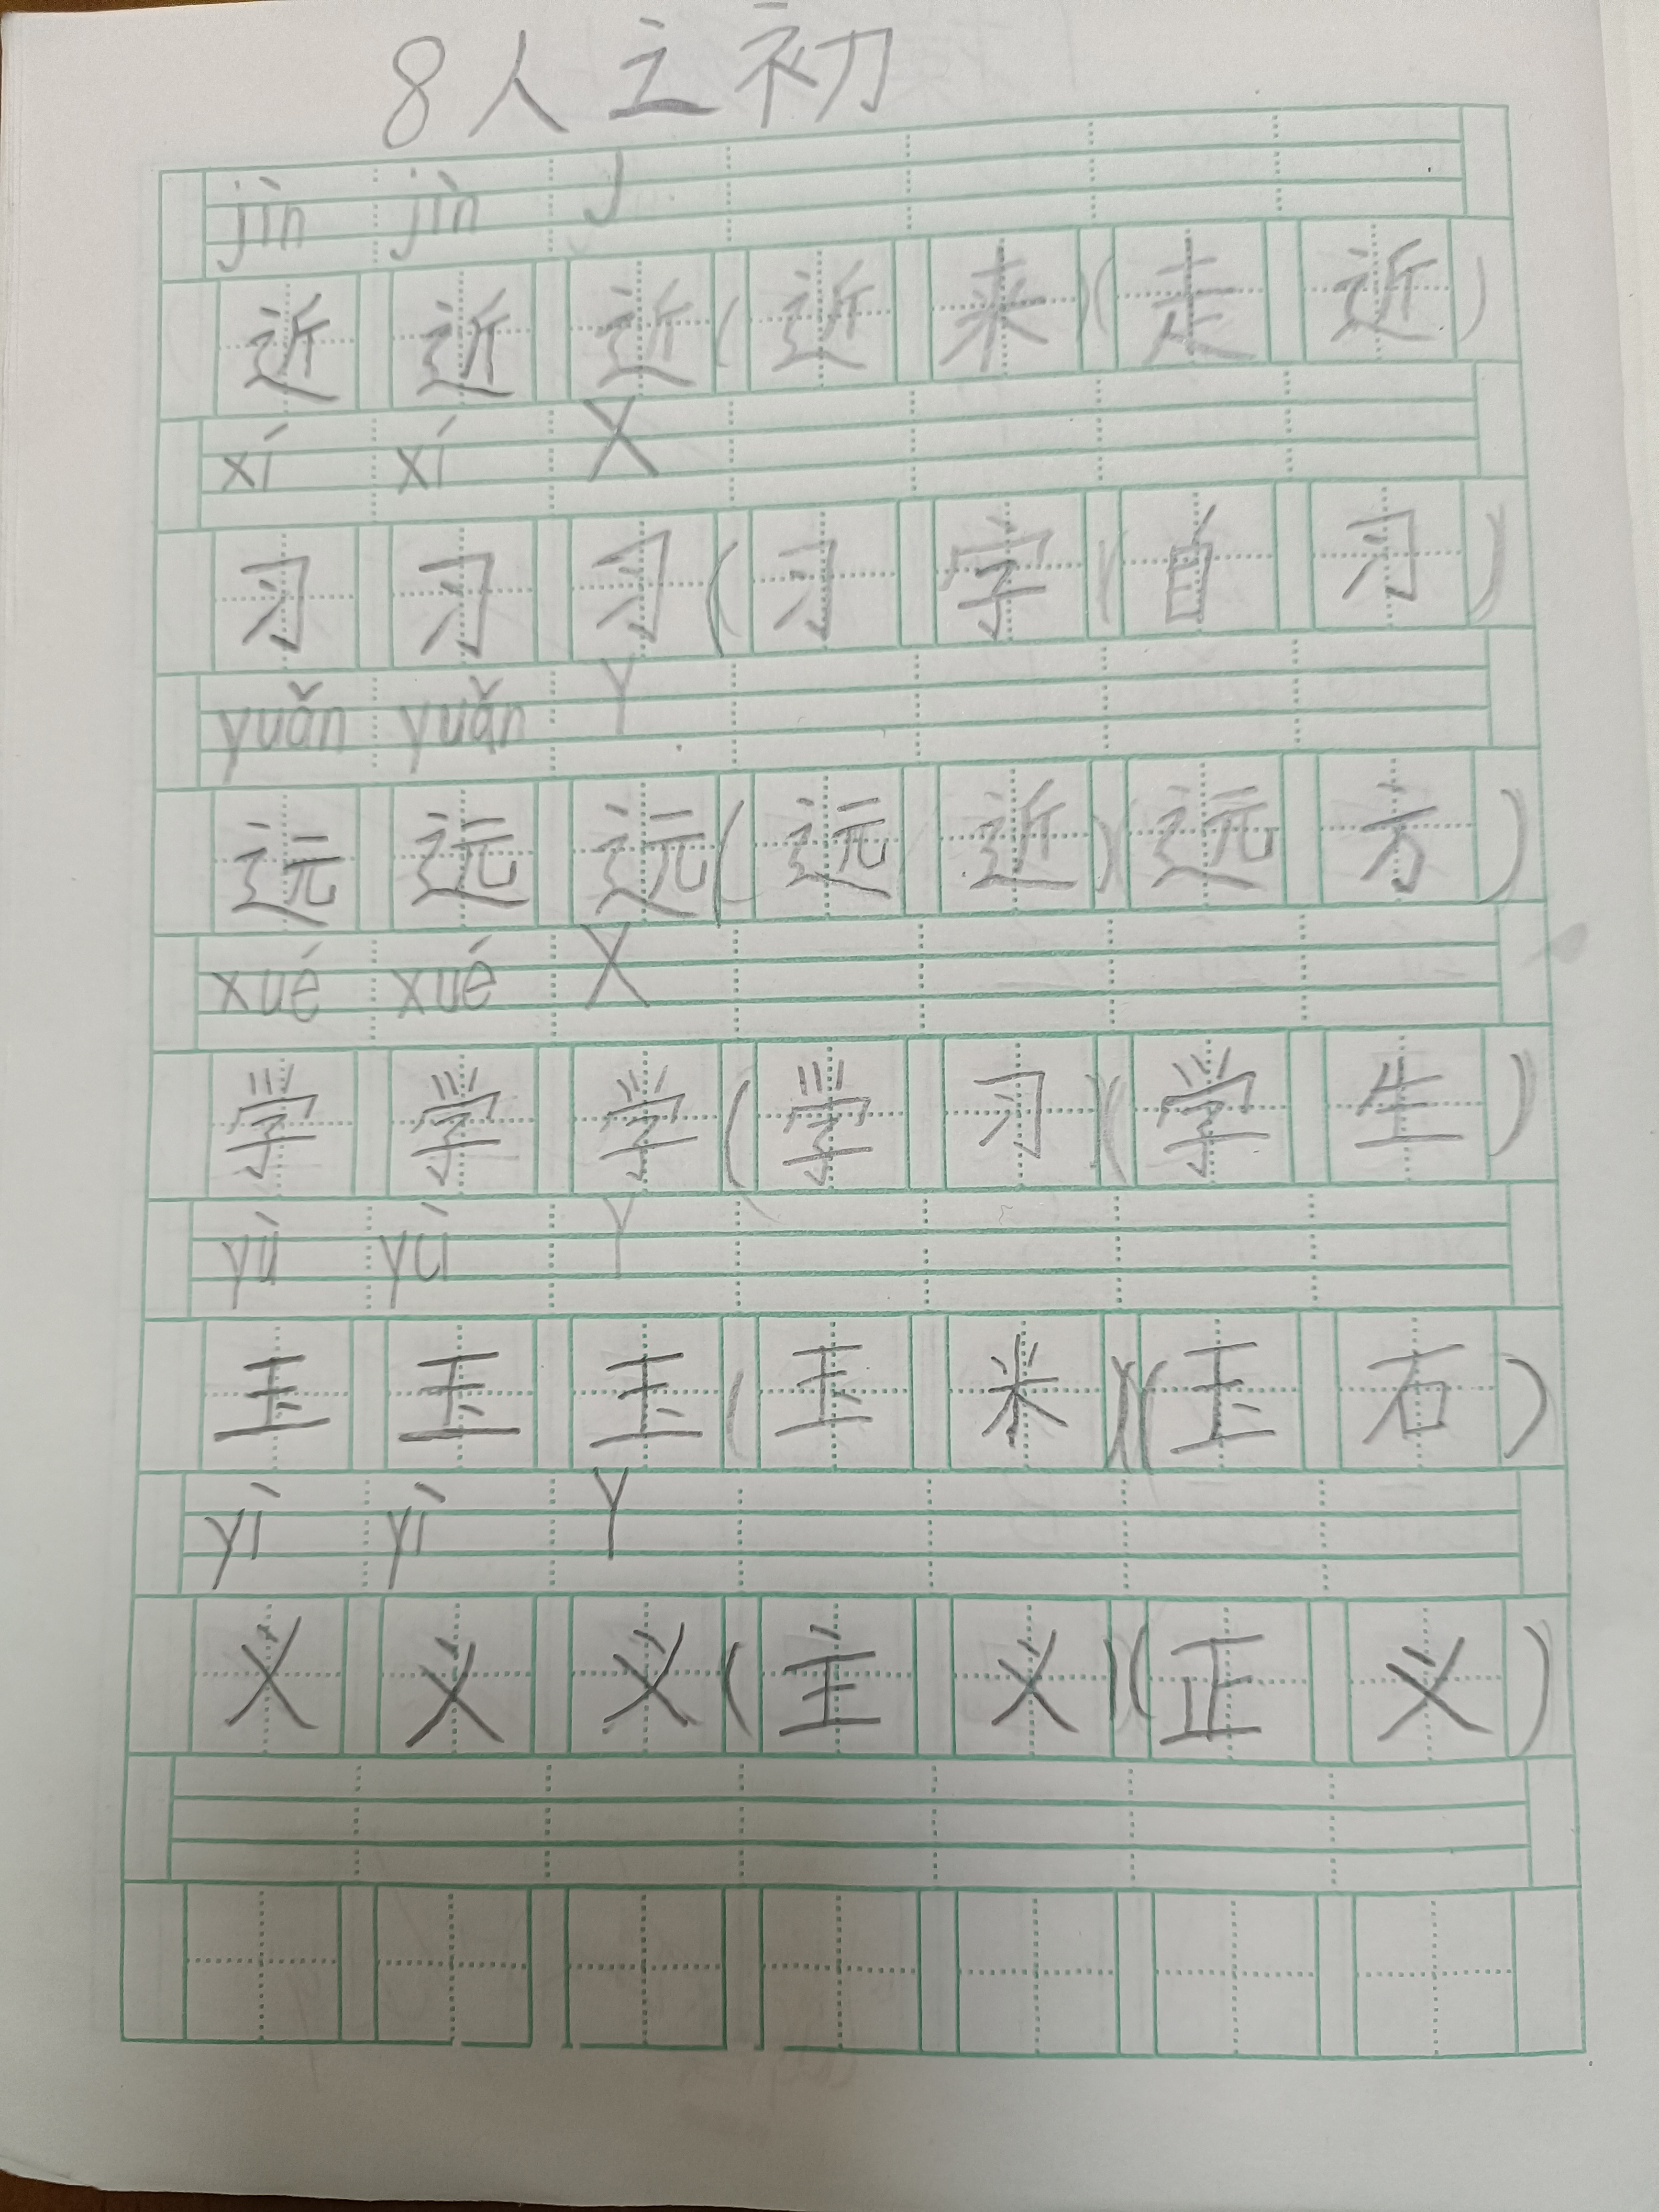 8人之初
jìn jìn J
近 近 近 ( 近 来 ) ( 走 近 )
xí xí X
习 习 习 ( 习 字 ( 自 习 )
yuǎn yuǎn Y
远 远 远 ( 远 近 ) ( 远 方 )
xué xué X
学 学 学 ( 学 习 ) ( 学 生 )
yù yù Y
玉 玉 玉 ( 玉 米 ) ( 玉 石 )
yì yì Y
义 义 义 ( 主 义 ) ( 正 义 )